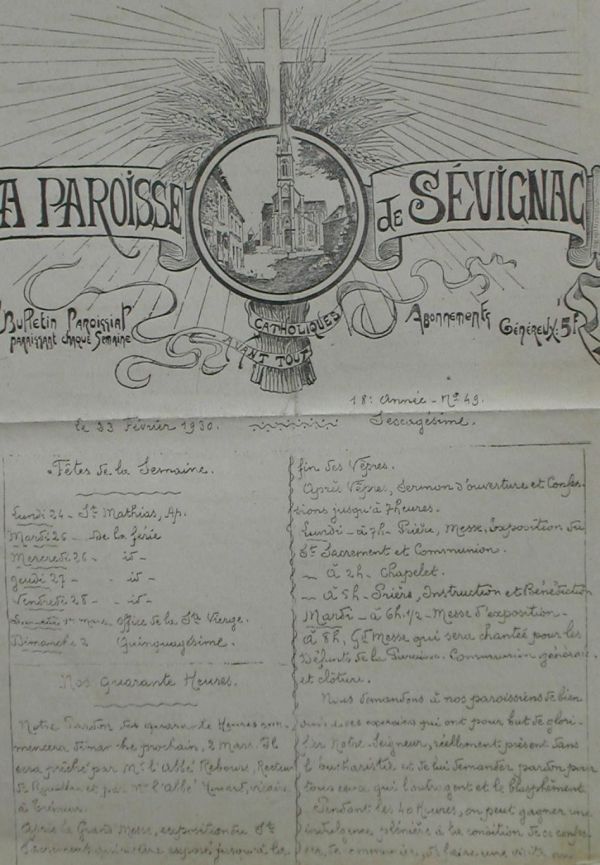 A PAROISSE de SÉVIGNAC
Bulletin Paroissial
paraissant chaque Semaine
CATHOLIQUES
AVANT TOUT
Abonnements
Généreux: 5f
18e Année - No 49.
le 23 Février 1930.
Sexagésime.
Fêtes de la Semaine.
Lundi 24 - St Mathias, Ap.
Mardi 25 - de la férie
Mercredi 26 - id -
Jeudi 27 - id -
Vendredi 28 - id -
1er mars, Office de la Ste Vierge.
Dimanche 2 Quinquagésime.
Nos Quarante Heures.
Notre Pardon des quarante Heures com-
mencera dimanche prochain, 2 Mars. Il
sera prêché par Mr l'Abbé Rebours, Recteur
de et par Mr l'Abbé vicaire
à Trémeur.
Après la Grand Messe, exposition du St
Sacrement qui restera exposé jusqu'à la
fin des Vêpres.
Après Vêpres, Sermon d'ouverture et Confes-
sions jusqu'à 7 heures.
Lundi - à 7h - Prière, Messe, Exposition du
St Sacrement et Communion.
- à 2h - Chapelet.
- à 5h - Prière, Instruction et Bénédiction
Mardi - à 6h.1/2 - Messe d'exposition -
à 8h, Gd Messe qui sera chantée pour les
Défunts de la Paroisse. Communion générale
et clôture.
Nous demandons à nos paroissiens de bien
suivre ces exercices qui ont pour but de glori-
fier Notre Seigneur, réellement présent dans
l'eucharistie et de lui demander pardon pour
tous ceux qui l'outragent et le blasphèment
Pendant les 40 Heures, on peut gagner une
indulgence plénière à la condition de se confes-
ser, de communier, de faire une visite